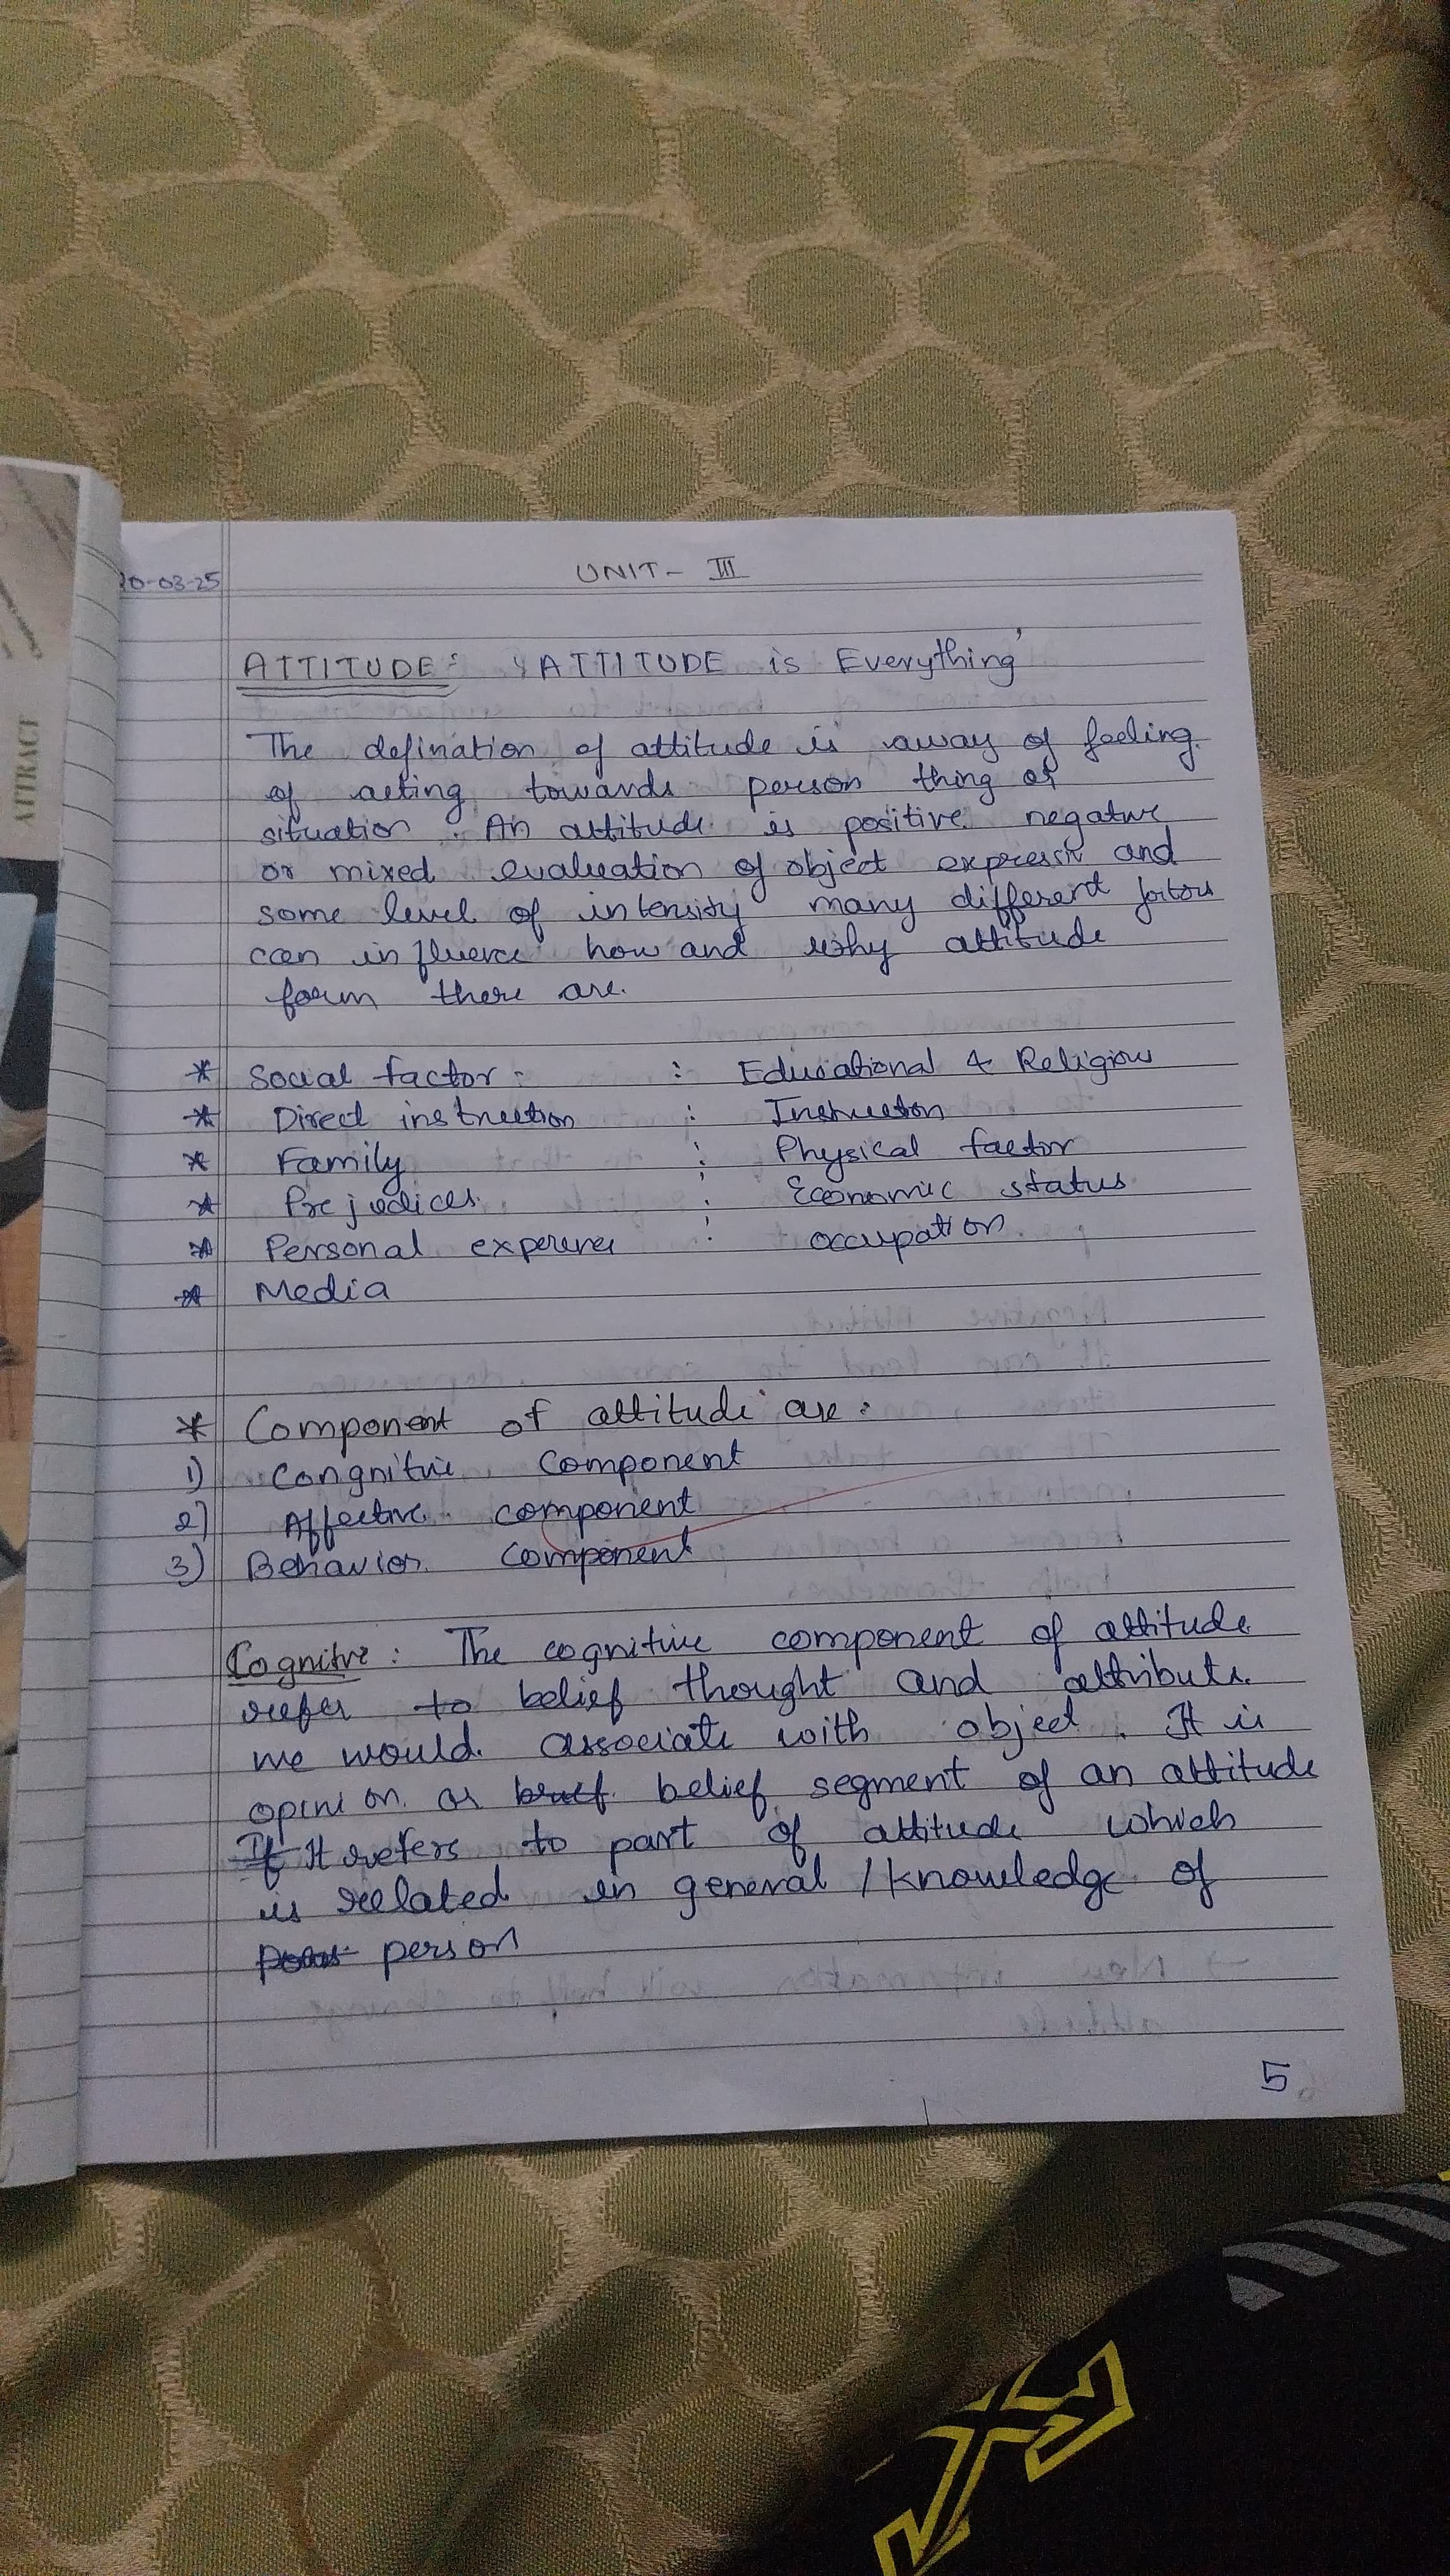 UNIT - III
20-03-25
ATTITUDE: 'ATTITUDE is Everything'
The defination of attitude is away of feeling
of acting towards person thing or
situation. An attitude is positive negative
or mixed evaluation of object express and
some level of intensity many different fators
can influence how and why attitude
form there are.
* Social factor : : Educational & Religion
* Direct instruction : Instruction
* Family : Physical factor
* Prejudices : Economic status
* Personal experence : occupation
* Media
* Component of attitude are:
1) Congnitive Component
2) Affective component
3) Behavior component
Cognitve: The cognitive component of attitude
refer to belief thought and attribute
we would associate with object. It is
opinion or belief segment of an attitude
It refers to part of attitude which
is related in general / knowledge of
person
5
ATTRACT